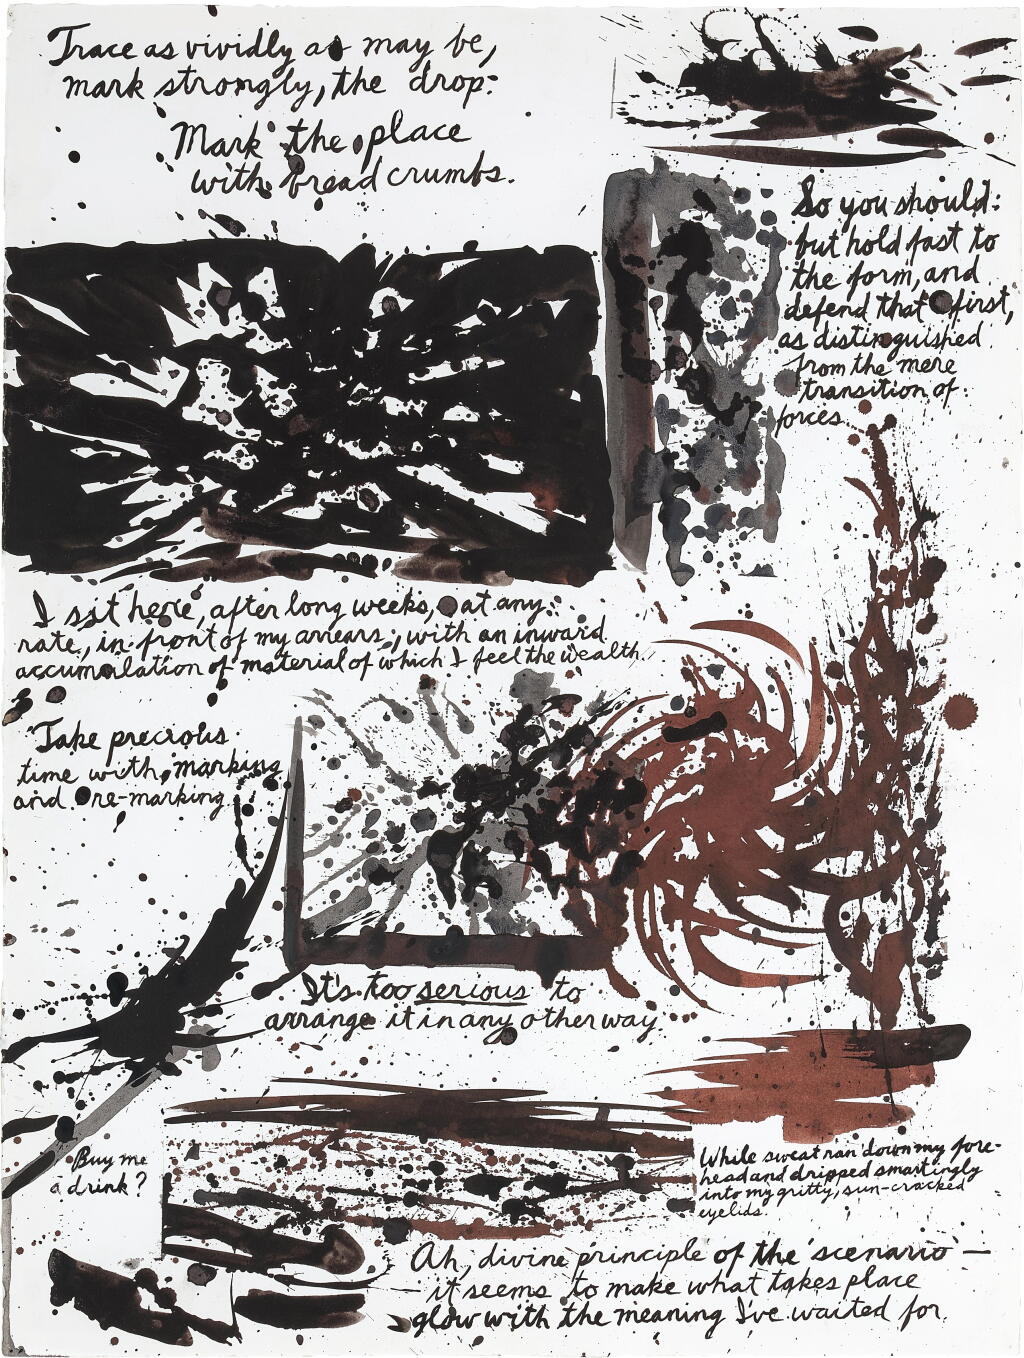 Trace as vividly as may be,
mark strongly, the drop:
Mark the place
with bread crumbs.
So you should:
but hold fast to
the form, and
defend that first,
as distinguished
from the mere
transition of
forces
I sit here, after long weeks, at any
rate, in front of my arrears, with an inward
accumulation of material of which I feel the wealth,
Take precious
time with marking
and re-marking
It's too serious to
arrange it in any other way
Buy me
a drink?
While sweat ran down my fore-
head and dripped smartingly
into my gritty, sun-cracked
eyelids.
Ah, divine principle of the scenario —
it seems to make what takes place
glow with the meaning I've waited for.